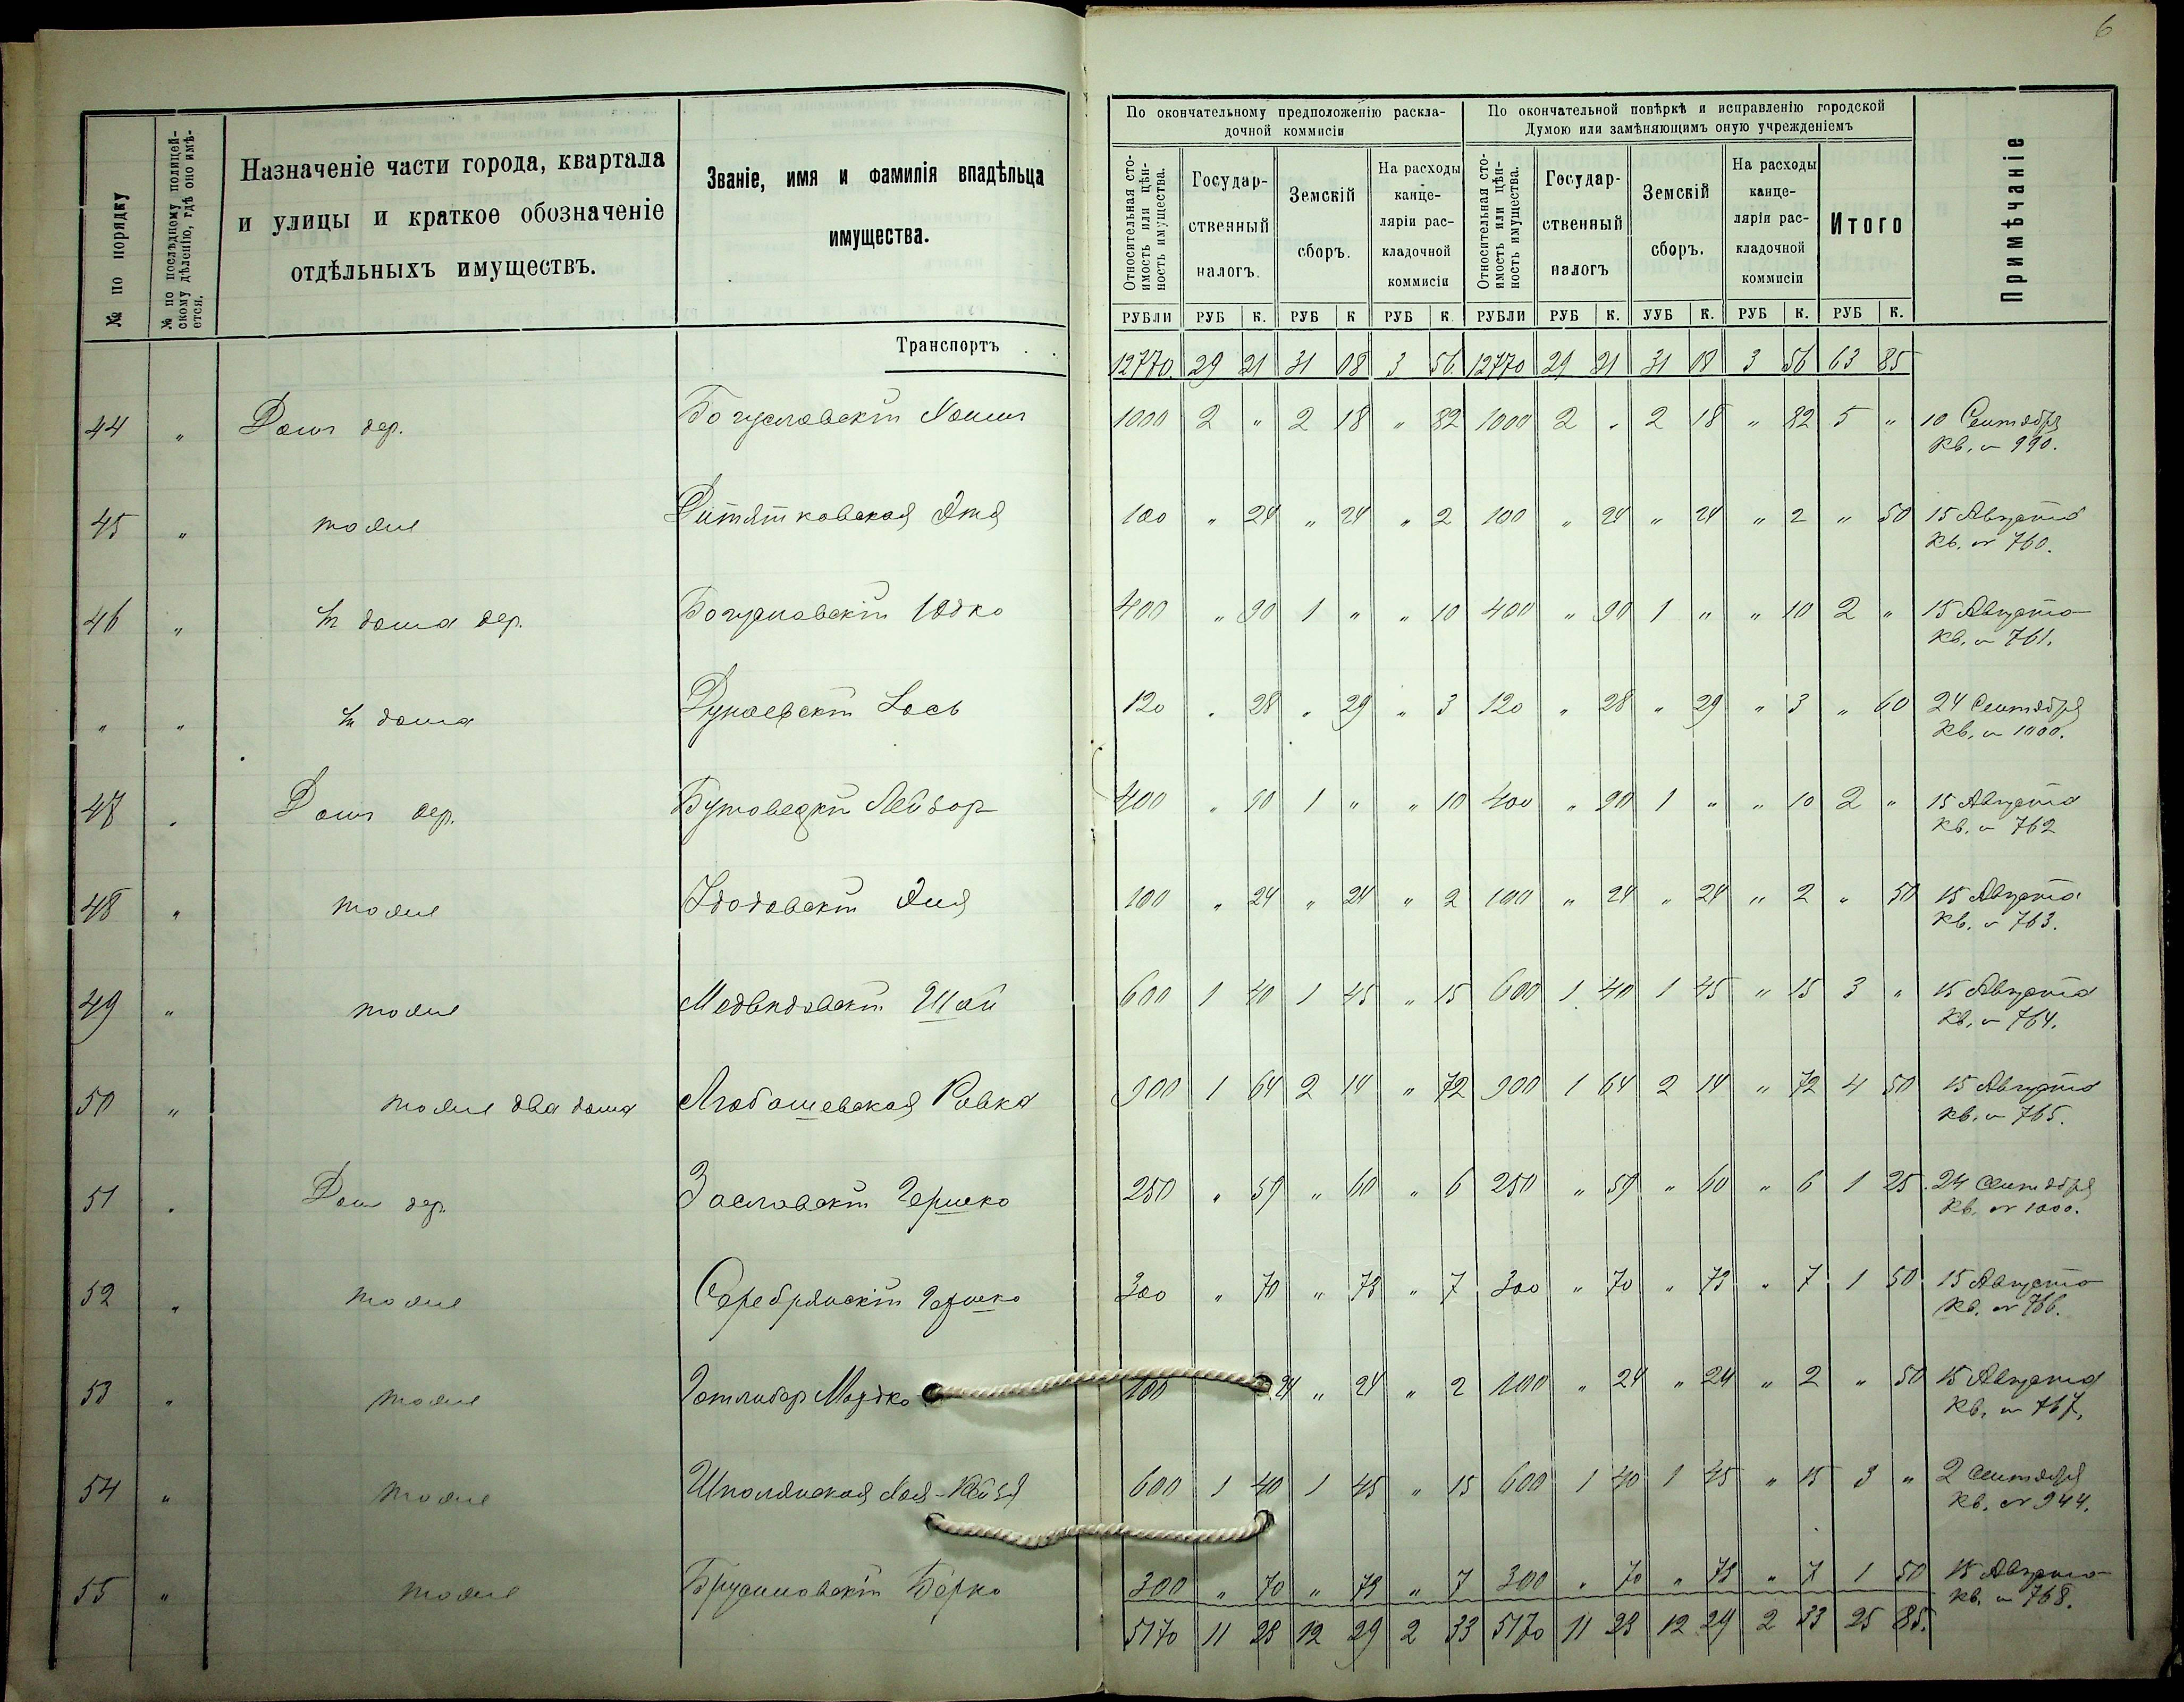 6
№ по порядку
№ по послѣдному полицей-
скому дѣленію, гдѣ оно имѣ-
ется.
Назначеніе части города, квартала
и улицы и краткое обозначеніе
отдѣльныхъ имуществъ.
Званіе, имя и фамилія владѣльца
имущества.
По окончательному предположенію раскла-
дочной коммисіи
По окончательной повѣркѣ и исправленію городской
Думою или замѣняющимъ оную учрежденіемъ
Относительная сто-
имость или цѣн-
ность имущества.
Государ-
ственный
налогъ.
Земскій
сборъ.
На расходы
канце-
ляріи рас-
кладочной
коммисіи
Относительная сто-
имость или цѣн-
ность имущества.
Государ-
ственный
налогъ
Земскій
сборъ.
На расходы
канце-
ляріи рас-
кладочной
коммисіи
Итого
Примѣчаніе
РУБЛИ РУБ К. РУБ К РУБ К. РУБЛИ РУБ К. УУБ К. РУБ К. РУБ К.
Транспортъ . . 12770. 29 21 31 08 3 56. 12770 29 21 31 08 3 56 63 85
44 " Домъ дер. Богуславскій Хаимъ 1000 2 " 2 18 " 82 1000 2 " 2 18 " 82 5 " 10 Сентября
кв. № 990.
45 " тоже 100 " 24 " 24 " 2 100 " 24 " 24 " 2 " 50 15 Августа
кв. № 760.
46 " ½ дома дер. Богуславскій Юдко 400 " 90 1 " " 10 400 " 90 1 " " 10 2 " 15 Августа
кв. № 761.
" " ½ дома Дунаевскій 120 " 28 " 29 " 3 120 " 28 " 29 " 3 " 60 24 Сентября
кв. № 1000.
47 " Домъ дер. Лейзор 400 " 90 1 " " 10 400 " 90 1 " " 10 2 " 15 Августа
кв. № 762
48 " тоже 100 " 24 " 24 " 2 100 " 24 " 24 " 2 " 50 15 Августа
кв. № 763.
49 " тоже Медвѣдовскій 600 1 40 1 45 " 15 600 1 40 1 45 " 15 3 " 15 Августа
кв. № 764.
50 " тоже два дома Любашевская Ривка 900 1 64 2 14 " 72 900 1 64 2 14 " 72 4 50 15 Августа
кв. № 765.
51 " Домъ дер. Заславскій Гершко 250 " 59 " 60 " 6 250 " 59 " 60 " 6 1 25 24 Сентября
кв. № 1000.
52 " тоже Серебрянскій Гершко 300 " 70 " 73 " 7 300 " 70 " 73 " 7 1 50 15 Августа
кв. № 766.
53 " тоже Мордко 100 24 " 24 " 2 100 " 24 " 24 " 2 " 50 15 Августа
кв. № 767.
54 " тоже Шполянская 600 1 40 1 45 " 15 600 1 40 1 45 " 15 3 " 2 Сентября
кв. № 944.
55 " тоже Брусиловскій Берко 300 " 70 " 73 " 7 300 " 70 " 73 " 7 1 50 15 Августа
кв. № 768.
5170 11 23 12 29 2 33 5170 11 23 12 29 2 33 25 85.